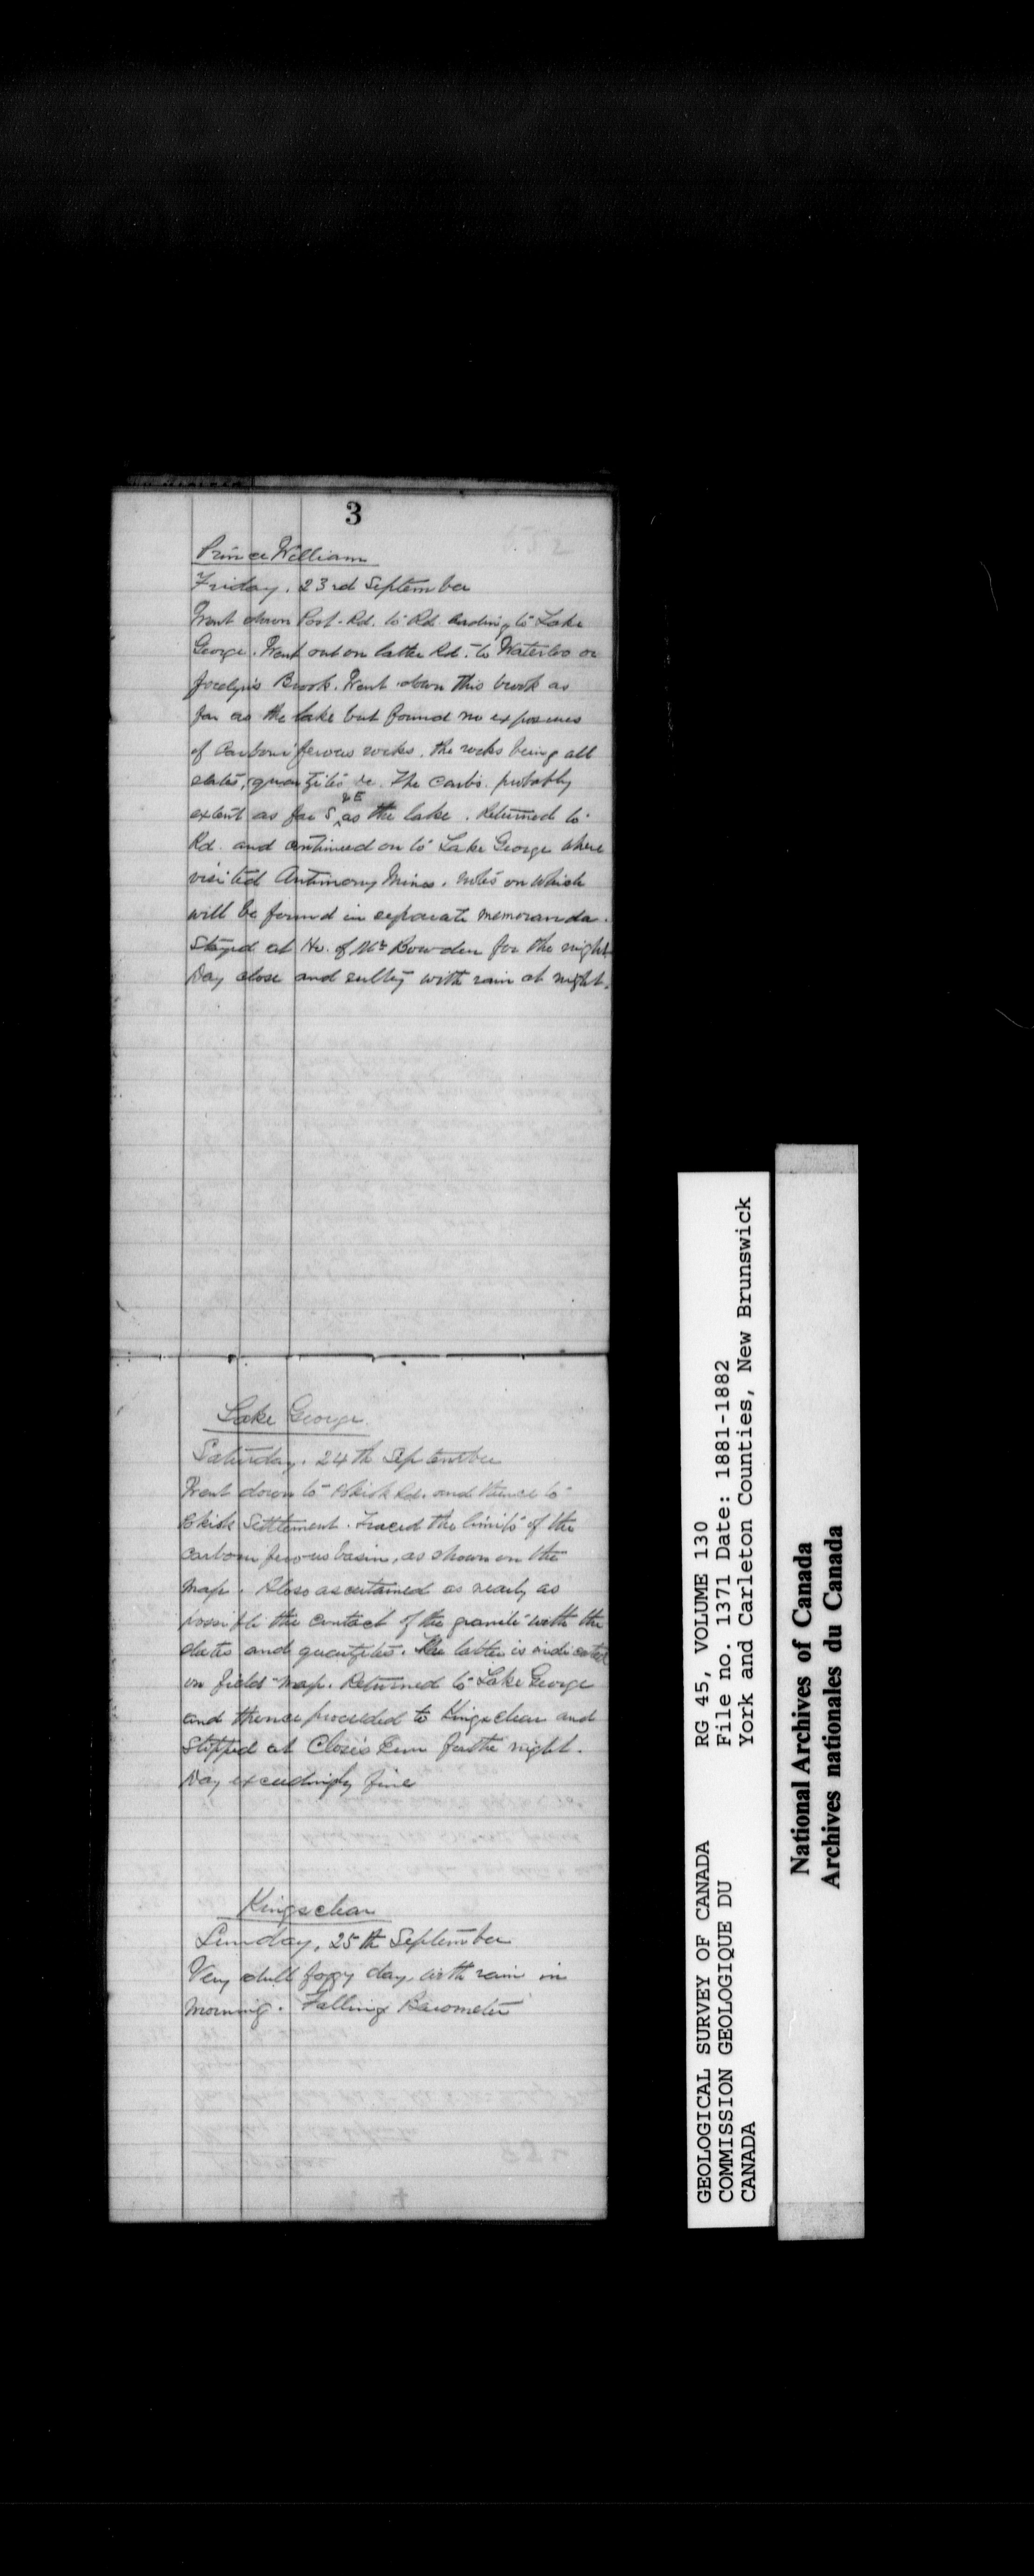 3
Prince William
Friday, 23rd September
Went down Post-Rd. to Rd. leading to Lake
George. Went out on latter Rd. to Waterloo or
Joselyn's Brook. Went down this brook as
far as the lake but found no exposures
of Carboniferous rocks. the rocks being all
slates, quartzites &c. The carbs. probably
& E
extent as far S. as the lake. Returned to
Rd. and continued on to Lake George where
visited Antimony Mines. notes on which
will be found in separate memoranda.
Stayed at Ho. of Mr Bowden for the night
Day close and sultry with rain at night.
Lake George
Saturday. 24th September
Went down to Rd. and thence to
Settlement. Traced the limits of the
carboniferous basin, as shown on the
map. Also ascertained as nearly as
possible the contact of the granite with the
slates and quartzites. The latter is indicated
on field-map. Returned to Lake George
and thence proceeded to Kingsclear and
Stopped at Close's Inn for the night.
Day exceedingly fine
Kingsclear
Sunday, 25th September
Very dull foggy day, with rain in
morning. Falling Barometer
GEOLOGICAL SURVEY OF CANADA RG 45, VOLUME 130
COMMISSION GEOLOGIQUE DU File no. 1371 Date: 1881-1882
CANADA York and Carleton Counties, New Brunswick
National Archives of Canada
Archives nationales du Canada